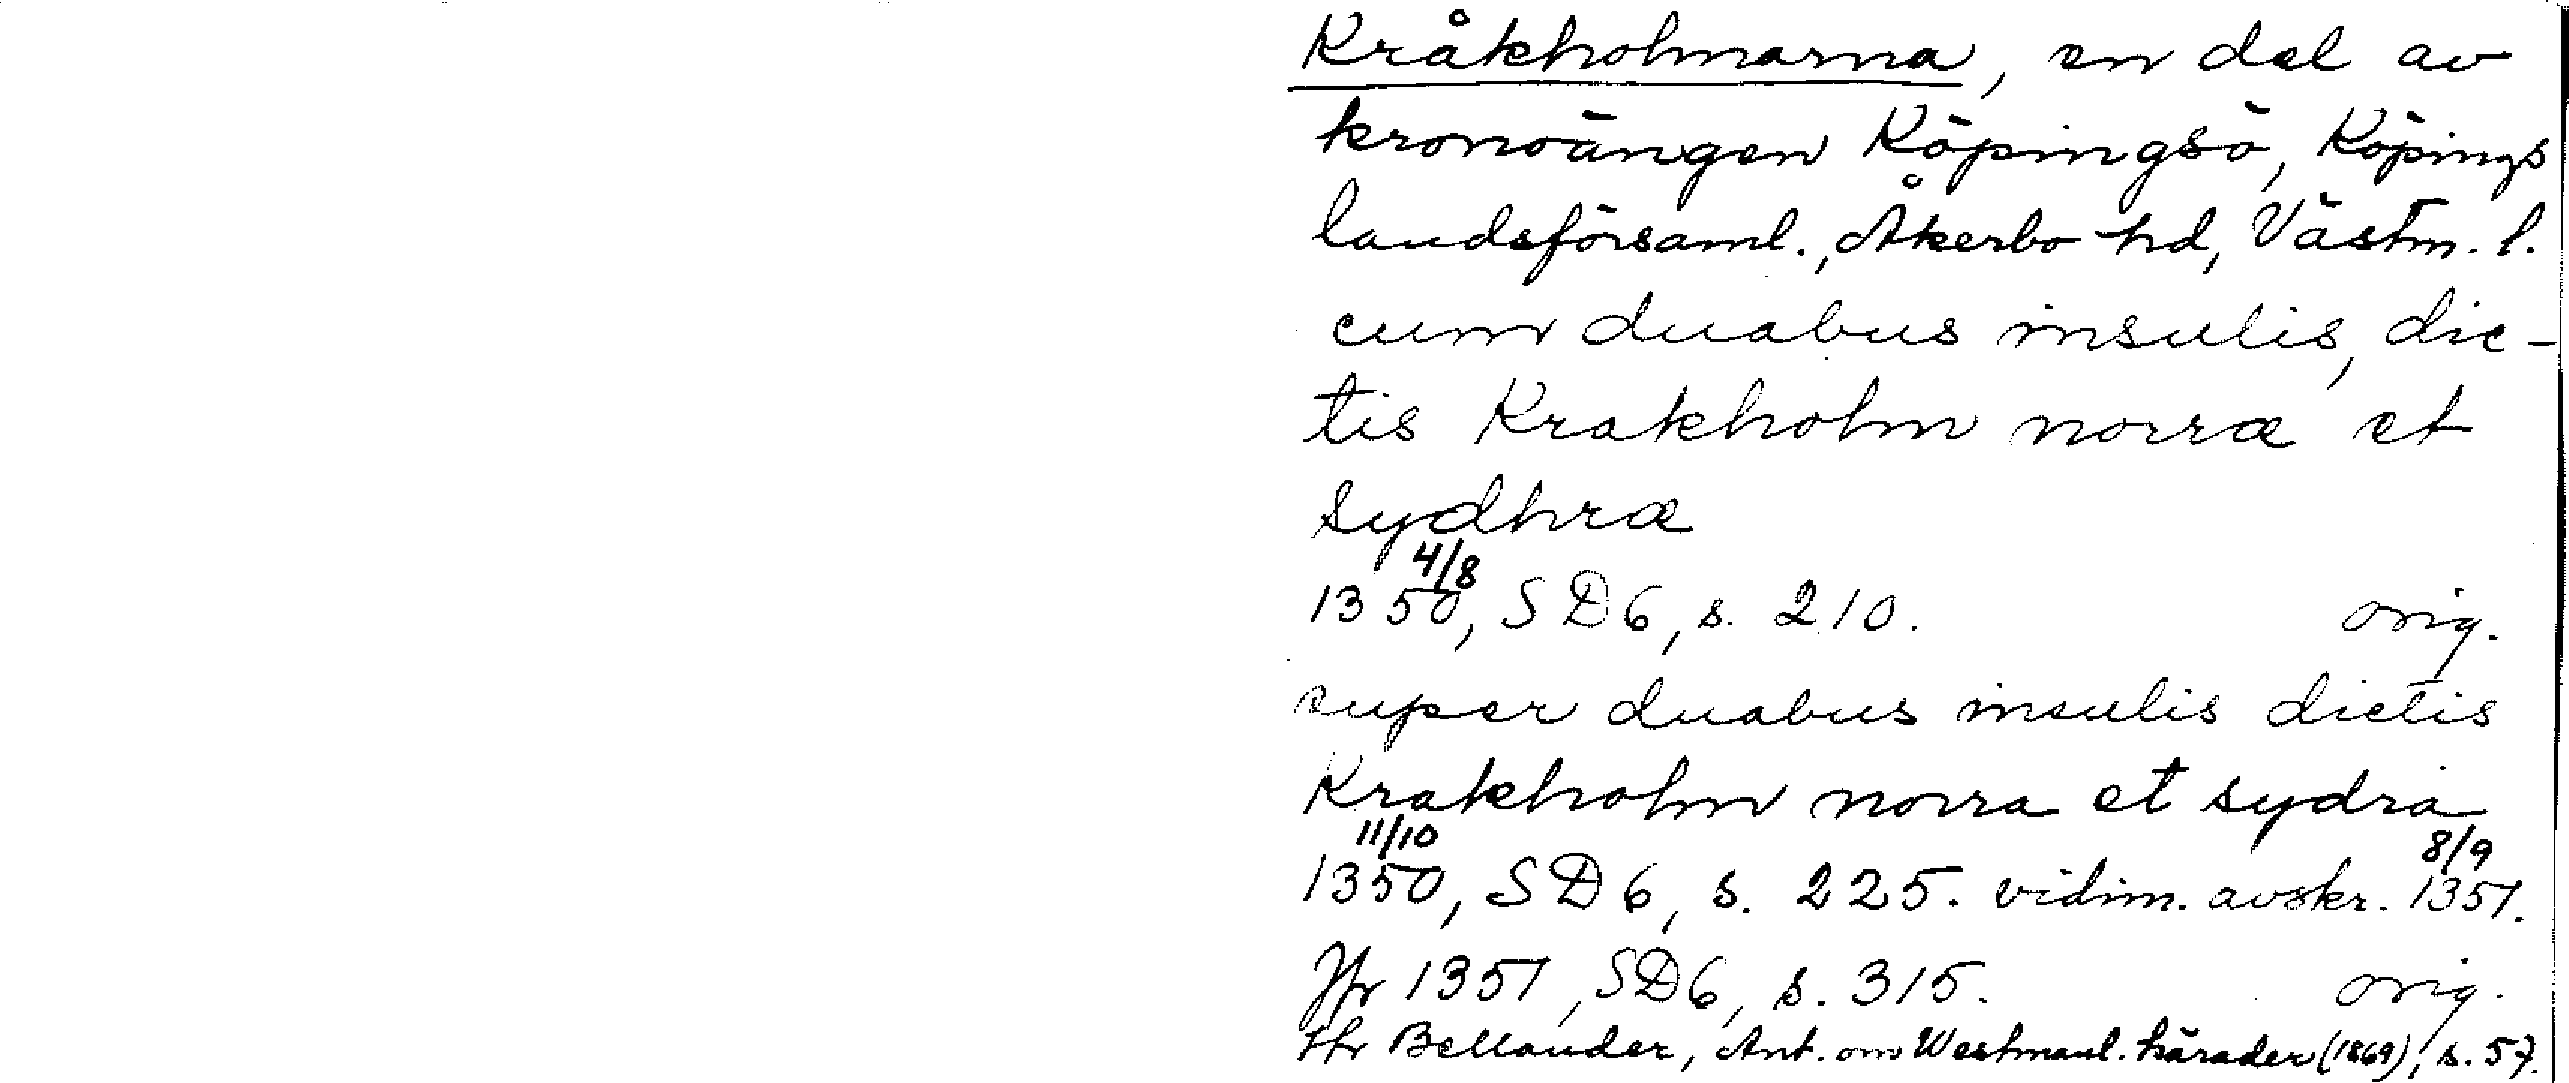 Kråkholmarna, en del av
kronoängen Köpingsö, Köpings
landsförsaml., Åkerbo hd, Västm. l.
cum duabus insulis, dic-
tis Krakholm norræ et
sydhræ
4/8
1350, SD6, s. 210. orig.
super duabus insulis dictis
Krakholm norra et sydra
11/10 8/9
1350, SD6, s. 225. vidim. avskr. 1351.
Jfr 1351, SD6, s. 315. orig.
Jfr Bellander, Ant. om Westmanl. härader (1869), s. 57.